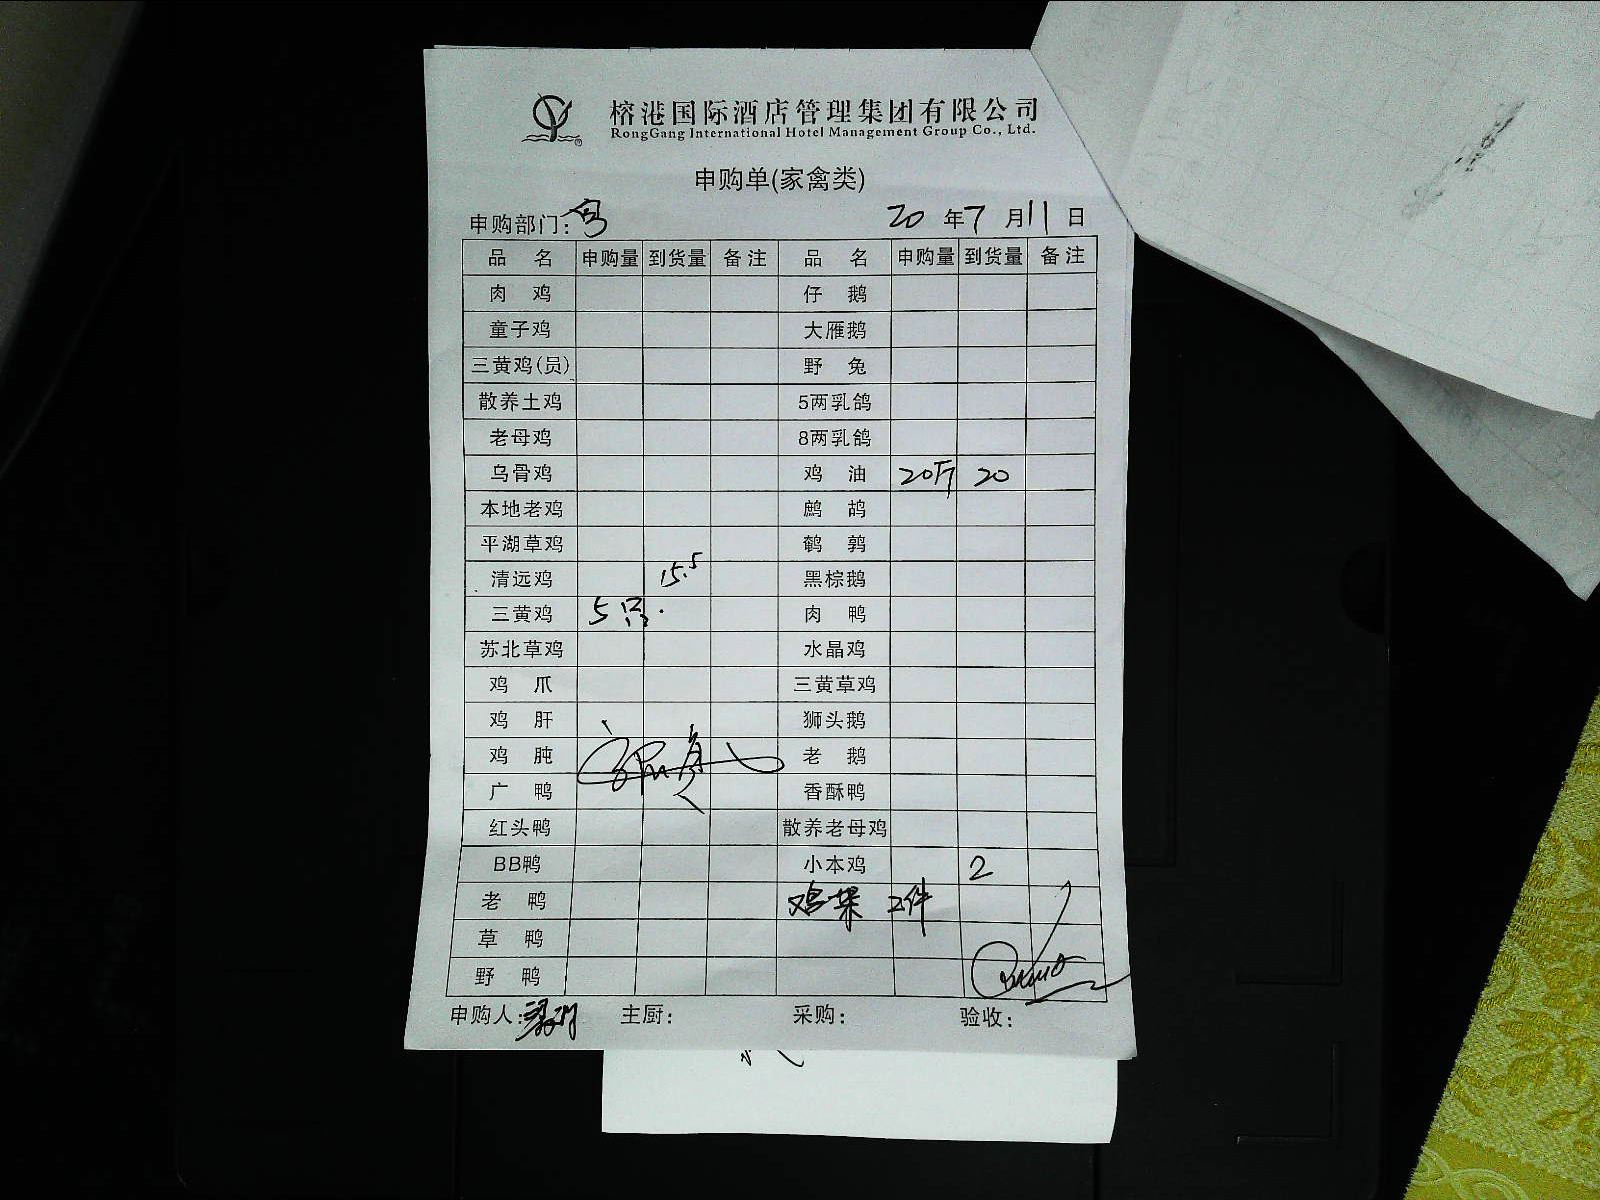 榕港国际酒店管理集团有限公司
RongGang International Hotel Management Group Co., Ltd.
申购单(家禽类)
申购部门: 20 年 7 月 11 日
品 名 申购量 到货量 备注 品 名 申购量 到货量 备注
肉 鸡 仔 鹅
童子鸡 大雁鹅
三黄鸡(员) 野 兔
散养土鸡 5两乳鸽
老母鸡 8两乳鸽
乌骨鸡 鸡 油 20斤 20
本地老鸡 鹧 鸪
平湖草鸡 鹌 鹑
清远鸡 15.5 黑棕鹅
三黄鸡 5只 肉 鸭
苏北草鸡 水晶鸡
鸡 爪 三黄草鸡
鸡 肝 狮头鹅
鸡 肫 老 鹅
广 鸭 香酥鸭
红头鸭 散养老母鸡
BB鸭 小本鸡 2
老 鸭 鸡 2件
草 鸭
野 鸭
申购人: 主厨: 采购: 验收: